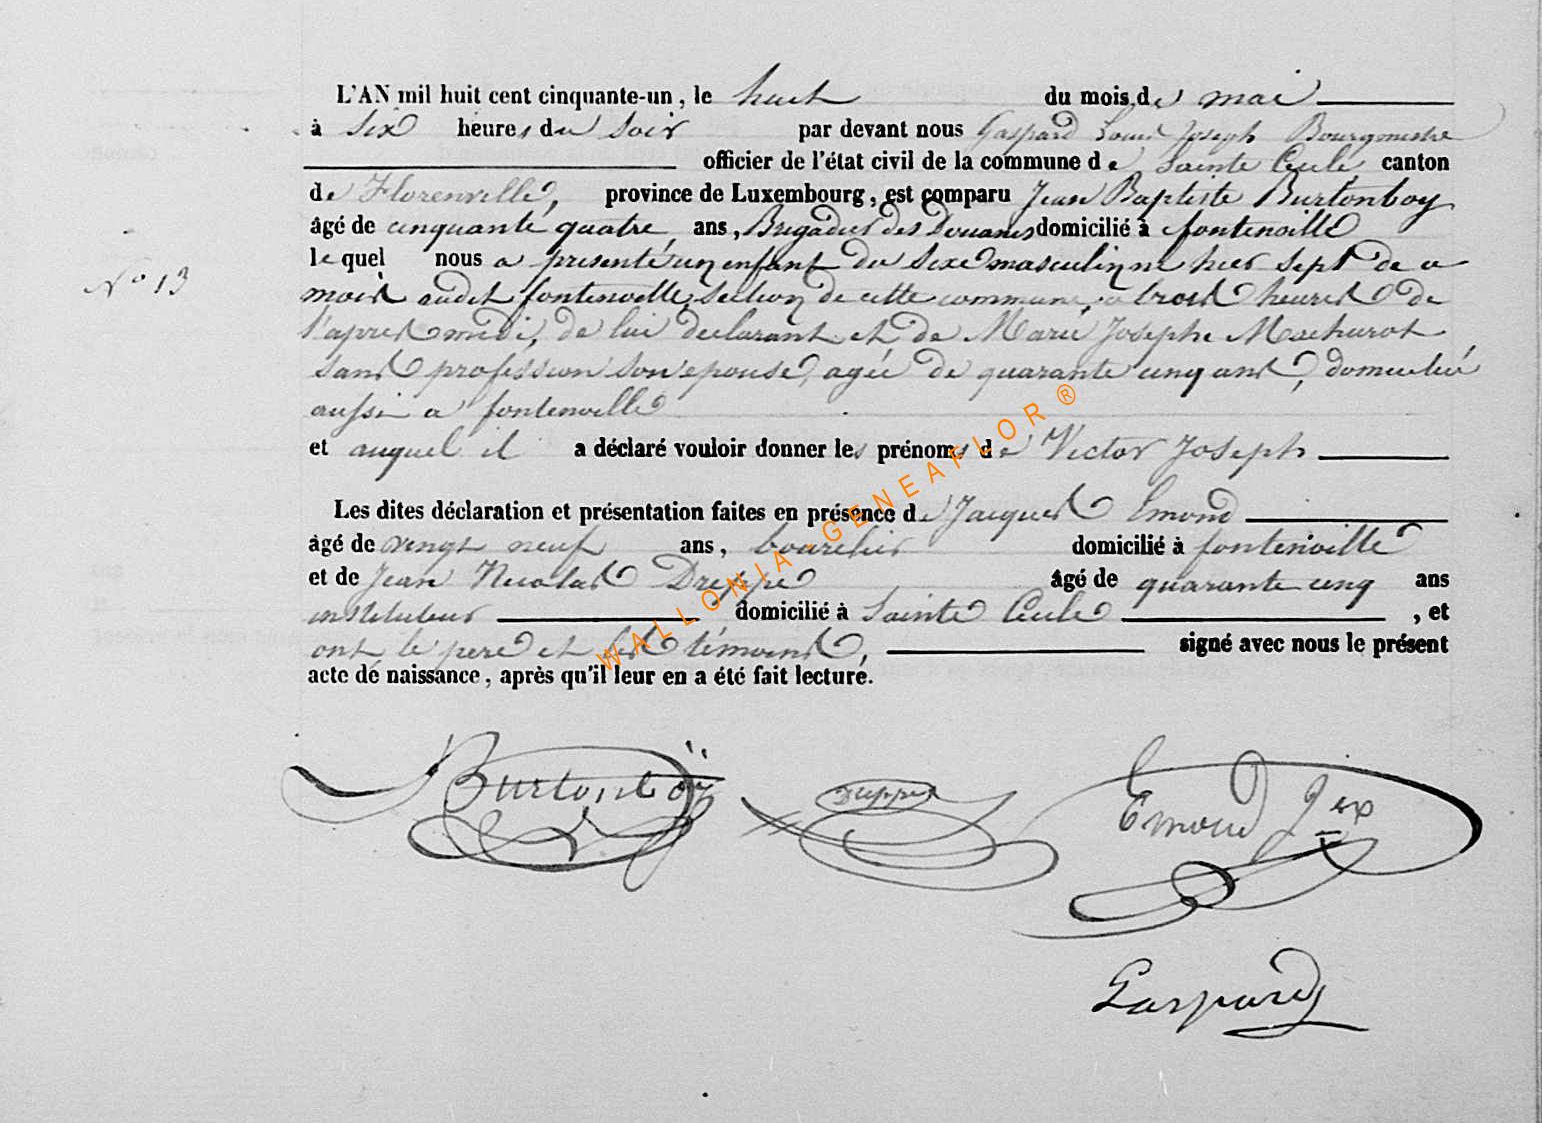 L'AN mil huit cent cinquante-un, le huit du mois de mai
à Six heures du Soir par devant nous Gaspard Louis Joseph Bourgmestre
officier de l'état civil de la commune de Sainte Cecile canton
de Florenville, province de Luxembourg, est comparu Jean Baptiste Burtonboy
âgé de cinquante quatre ans, Brigadier des Douanes domicilié à fontenoille
le quel nous a presenté un enfant du Sexe masculin né hier Sept de ce
mois audit fontenoille, section de cette commune, a trois heures de
l'après midi, de lui declarant et de Marie Josephe Machurot
sans profession son epouse, agée de quarante cinq ans, domiciliée
aussi a fontenoille
et auquel il a déclaré vouloir donner les prénoms de Victor Joseph
N° 13
Les dites déclaration et présentation faites en présence de Jacques Emond
âgé de vingt neuf ans, bourelier domicilié à fontenoille
et de Jean Nicolas Dreppe âgé de quarante cinq ans
instituteur domicilié à Sainte Cecile, et
ont le pere et les témoins, signé avec nous le présent
acte de naissance, après qu'il leur en a été fait lecture.
Burtonboÿ Dreppe Emond
Gaspard
WALLONIA-GENEAFLOR ®